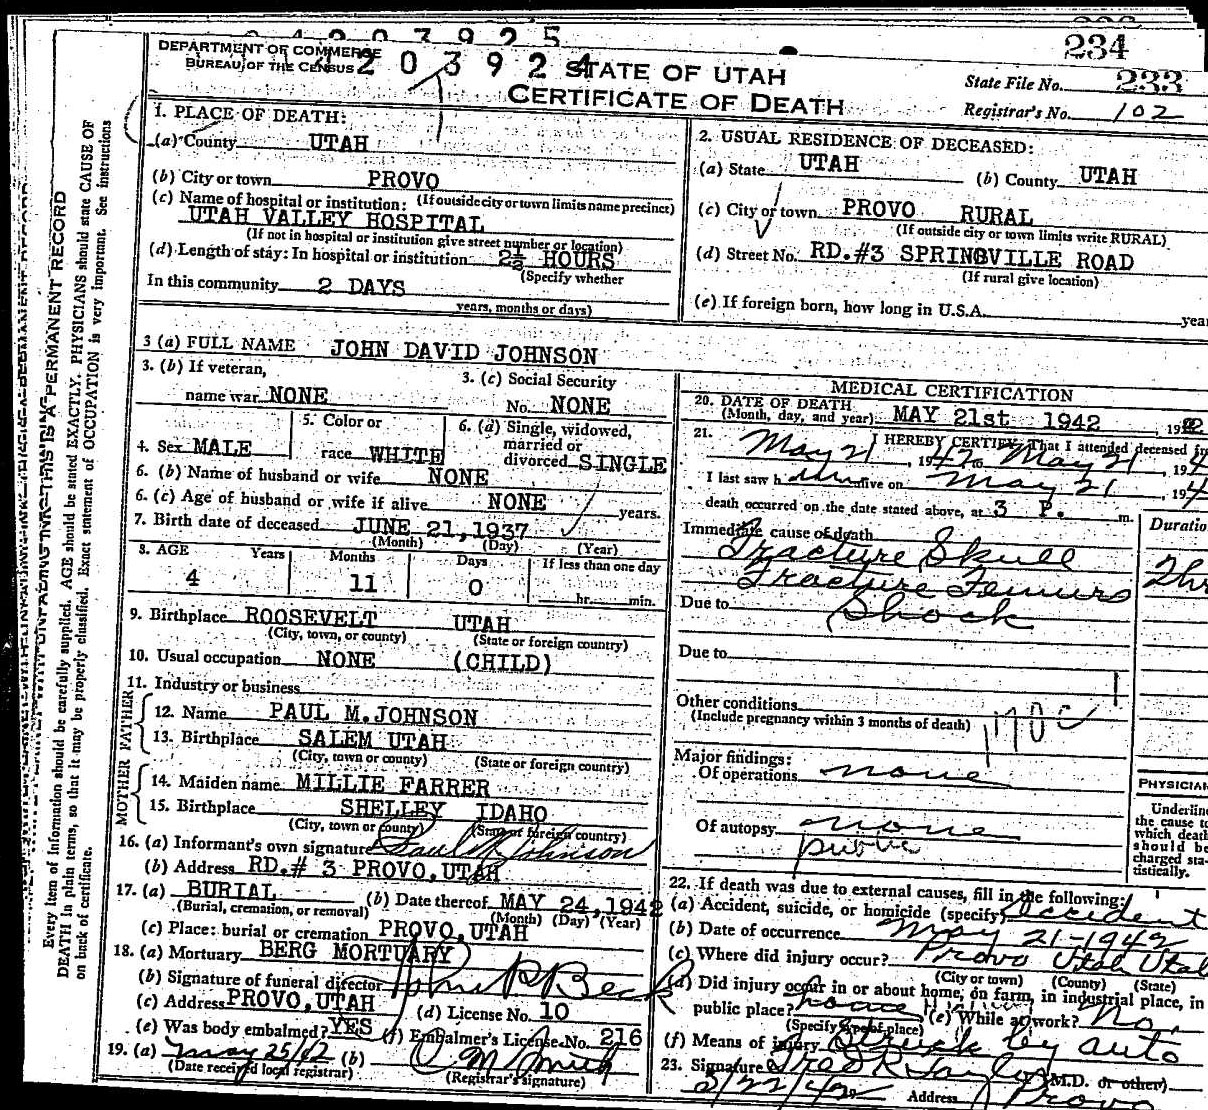 234
DEPARTMENT OF COMMERCE
BUREAU OF THE CENSUS
203924
STATE OF UTAH
CERTIFICATE OF DEATH
State File No. 233
Registrar's No. 102
1. PLACE OF DEATH:
(a) County UTAH
(b) City or town PROVO
(If outside city or town limits name precinct)
(c) Name of hospital or institution:
UTAH VALLEY HOSPITAL
(If not in hospital or institution give street number or location)
(d) Length of stay: In hospital or institution 2½ HOURS
(Specify whether
In this community 2 DAYS
years, months or days)
2. USUAL RESIDENCE OF DECEASED:
(a) State UTAH (b) County UTAH
(c) City or town PROVO RURAL
(If outside city or town limits write RURAL)
(d) Street No. RD.#3 SPRINGVILLE ROAD
(If rural give location)
(e) If foreign born, how long in U.S.A. year
3 (a) FULL NAME JOHN DAVID JOHNSON
3. (b) If veteran,
name war NONE
3. (c) Social Security
No. NONE
4. Sex MALE
5. Color or
race WHITE
6. (a) Single, widowed,
married or
divorced SINGLE
6. (b) Name of husband or wife NONE
6. (c) Age of husband or wife if alive NONE years.
7. Birth date of deceased JUNE 21, 1937
(Month) (Day) (Year)
8. AGE Years Months Days If less than one day
4 11 0 hr. min.
9. Birthplace ROOSEVELT UTAH
(City, town, or county) (State or foreign country)
10. Usual occupation NONE (CHILD)
11. Industry or business
FATHER
12. Name PAUL M. JOHNSON
13. Birthplace SALEM UTAH
(City, town, or county) (State or foreign country)
MOTHER
14. Maiden name MILLIE FARRER
15. Birthplace SHELLEY IDAHO
(City, town or county) (State or foreign country)
16. (a) Informant's own signature Paul M Johnson
(b) Address RD.# 3 PROVO, UTAH
17. (a) BURIAL (b) Date thereof MAY 24, 1942
(Burial, cremation, or removal) (Month) (Day) (Year)
(c) Place: burial or cremation PROVO, UTAH
18. (a) Mortuary BERG MORTUARY
(b) Signature of funeral director
(c) Address PROVO, UTAH (d) License No. 10
(e) Was body embalmed? YES (f) Embalmer's License No. 216
19. (a) May 25/42 (b) O M Smith
(Date received local registrar) (Registrar's signature)
MEDICAL CERTIFICATION
20. DATE OF DEATH
(Month, day, and year) MAY 21st 1942
21. I HEREBY CERTIFY, That I attended deceased fr
May 21, 1942 to May 21, 194
I last saw h alive on May 21, 194
death occurred on the date stated above, at 3 P. m.
Immediate cause of death Duratio
Fracture Skull 2 hr
Fracture Femurs
Due to Shock
Due to
Other conditions
(Include pregnancy within 3 months of death)
170c
Major findings:
Of operations none
Of autopsy none
public
PHYSICIAN
Underline
the cause to
which death
should be
charged sta-
tistically.
22. If death was due to external causes, fill in the following:
(a) Accident, suicide, or homicide (specify) Accident
(b) Date of occurrence May 21-1942
(c) Where did injury occur? Provo Utah Utah
(City or town) (County) (State)
(d) Did injury occur in or about home, on farm, in industrial place, in
public place? home (e) While at work? No.
(Specify type of place)
(f) Means of injury Struck by auto
23. Signature Fred R Taylor (M.D. or other)
5/22/42 Address Provo
Every item of information should be carefully supplied. AGE should be stated EXACTLY. PHYSICIANS should state CAUSE OF
DEATH in plain terms, so that it may be properly classified. Exact statement of OCCUPATION is very important. See instructions
on back of certificate.